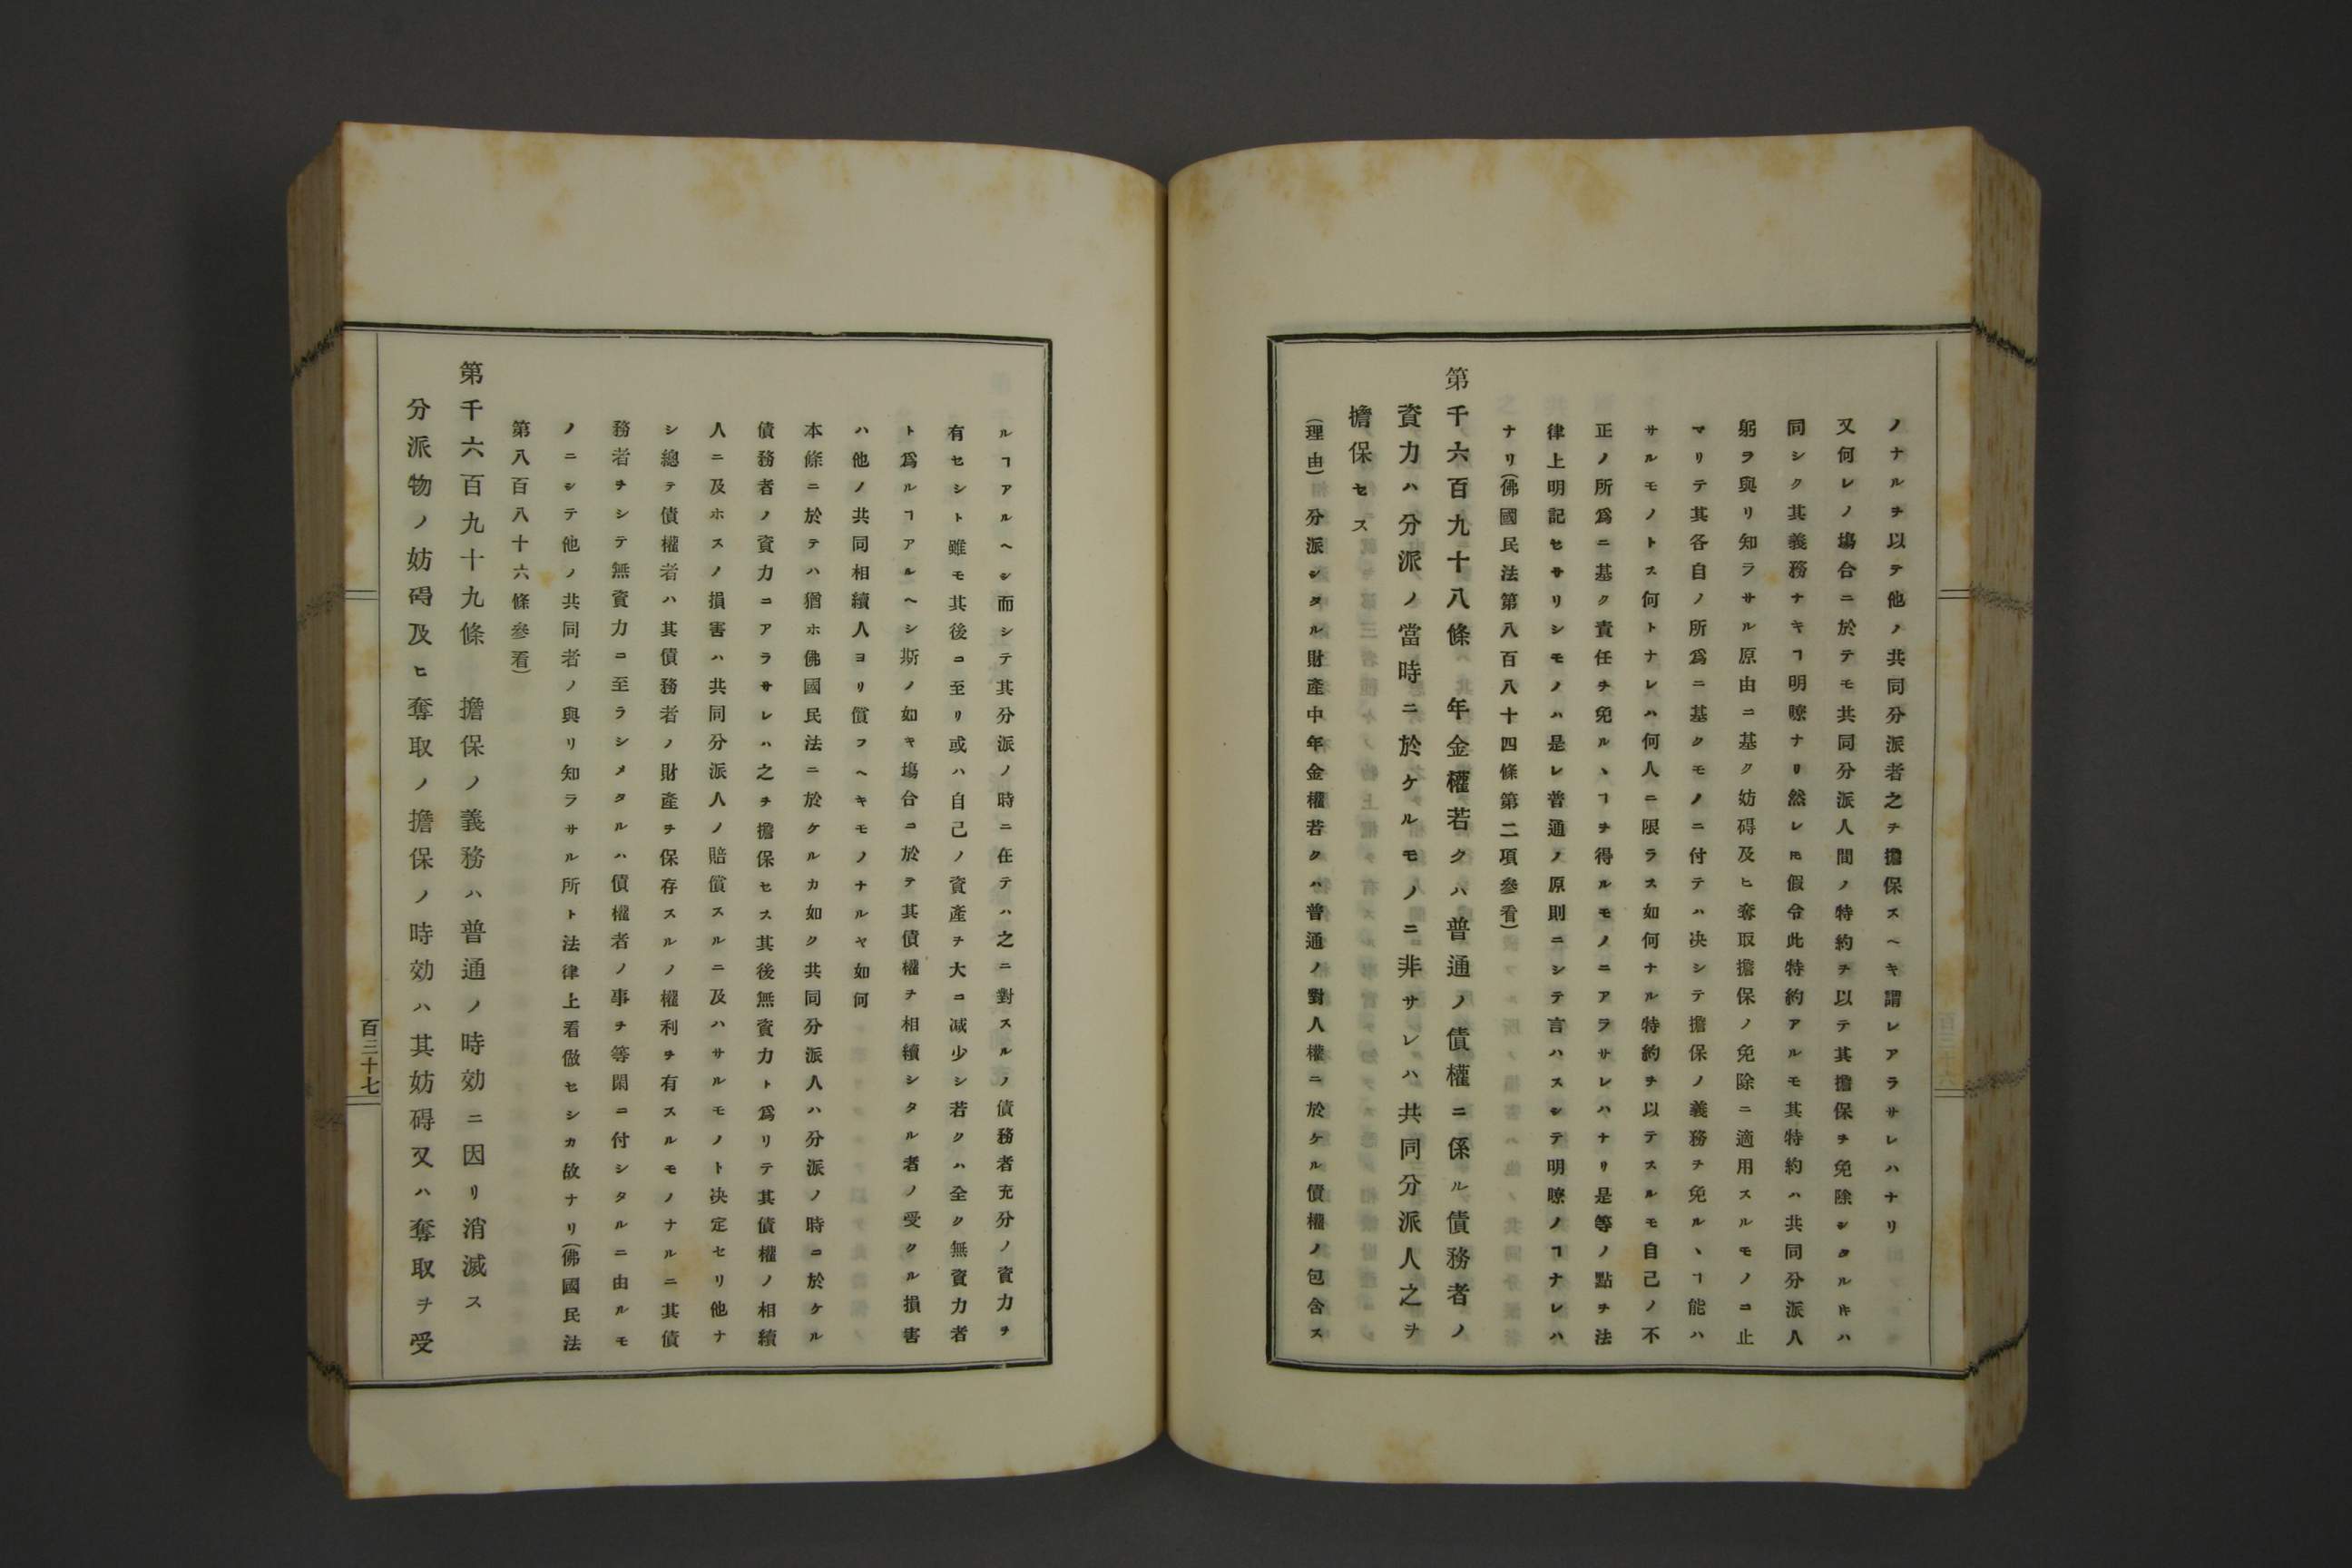 ノナルヲ以テ他ノ共同分派者之ヲ擔保スヘキ謂レアラサレハナリ
又何レノ塲合ニ於テモ共同分派人間ノ特約ヲ以テ其擔保ヲ免除シタルキハ
同シク其義務ナキヿ明瞭ナリ然レ𪜈假令此特約アルモ其特約ハ共同分派人
躬ヲ與リ知ラサル原由ニ基ク妨碍及ヒ奪取擔保ノ免除ニ適用スルモノニ止
マリテ其各自ノ所爲ニ基クモノニ付テハ决シテ擔保ノ義務ヲ免ルヽヿ能ハ
サルモノトス何トナレハ何人ニ限ラス如何ナル特約ヲ以テスルモ自己ノ不
正ノ所爲ニ基ク責任ヲ免ルヽヿヲ得ルモノニアラサレハナリ是等ノ點ヲ法
律上明記セサリシモノハ是レ普通ノ原則ニシテ言ハスシテ明瞭ノヿナレハ
ナリ(佛國民法第八百八十四條第二項參看)
第千六百九十八條 年金權若クハ普通ノ債權ニ係ル債務者ノ
資力ハ分派ノ當時ニ於ケルモノニ非サレハ共同分派人之ヲ
擔保セス
(理由)分派シタル財產中年金權若クハ普通ノ對人權ニ於ケル債權ノ包含ス
ルヿアルヘシ而シテ其分派ノ時ニ在テハ之ニ對スルノ債務者充分ノ資力ヲ
有セシト雖モ其後ニ至リ或ハ自己ノ資產ヲ大ニ减少シ若クハ全ク無資力者
ト爲ルヿアルヘシ斯ノ如キ塲合ニ於テ其債權ヲ相續シタル者ノ受クル損害
ハ他ノ共同相續人ヨリ償フヘキモノナルヤ如何
本條ニ於テハ猶ホ佛國民法ニ於ケルカ如ク共同分派人ハ分派ノ時ニ於ケル
債務者ノ資力ニアラサレハ之ヲ擔保セス其後無資力ト爲リテ其債權ノ相續
人ニ及ホスノ損害ハ共同分派人ノ賠償スルニ及ハサルモノト决定セリ他ナ
シ總テ債權者ハ其債務者ノ財產ヲ保存スルノ權利ヲ有スルモノナルニ其債
務者ヲシテ無資力ニ至ラシメタルハ債權者ノ事ヲ等閑ニ付シタルニ由ルモ
ノニシテ他ノ共同者ノ與リ知ラサル所ト法律上看倣セシカ故ナリ(佛國民法
第八百八十六條參看)
第千六百九十九條 擔保ノ義務ハ普通ノ時効ニ因リ消滅ス
分派物ノ妨碍及ヒ奪取ノ擔保ノ時効ハ其妨碍又ハ奪取ヲ受
百三十七